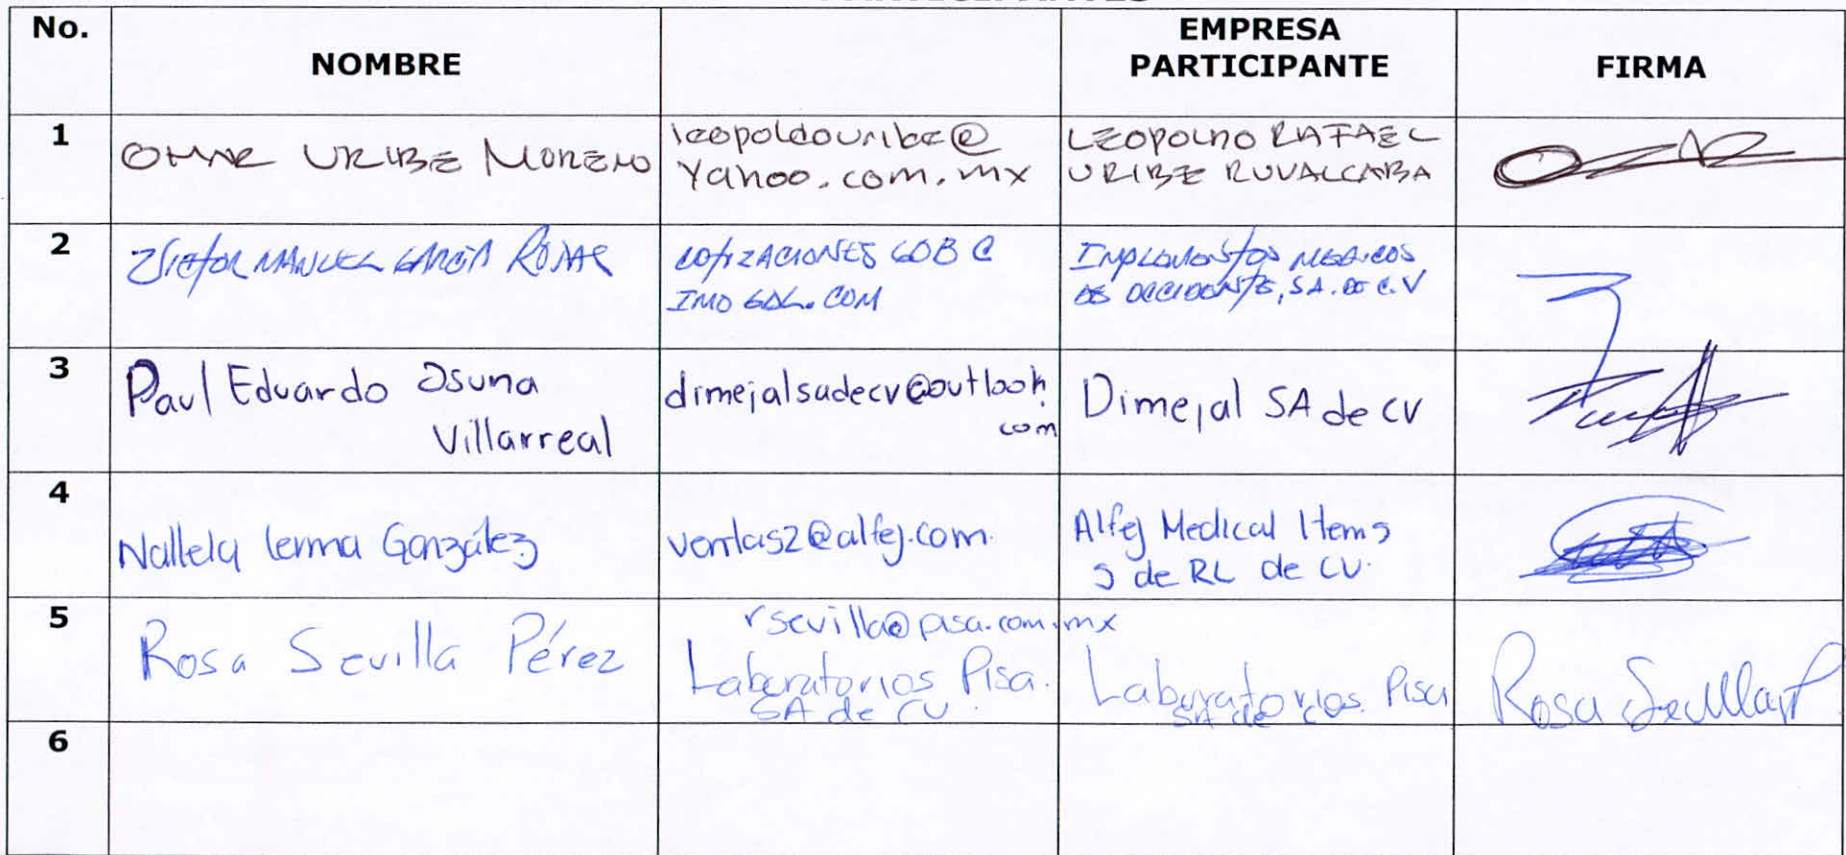 No.
NOMBRE
EMPRESA
PARTICIPANTE
FIRMA
1
OMAR URIBE MORENO
leopoldouribe@
Yahoo.com.mx
LEOPOLDO RAFAEL
URIBE RUVALCABA
2
VICTOR MANUEL GARCIA ROJAS
COTIZACIONES GOB @
IMO GDL.COM
IMPLEMENTOS MEDICOS
DE OCCIDENTE, SA. DE C.V
3
Paul Eduardo Osuna
Villarreal
dimejalsadecv@outlook.
com
Dimejal SA de CV
4
Nallely Lerma González
ventas2@alfej.com.
Alfej Medical Items
S de RL de CV.
5
Rosa Sevilla Pérez
rsevilla@pisa.com.mx
Laboratorios Pisa.
SA de CV.
Laboratorios Pisa
SA de CV.
Rosa Sevilla P
6